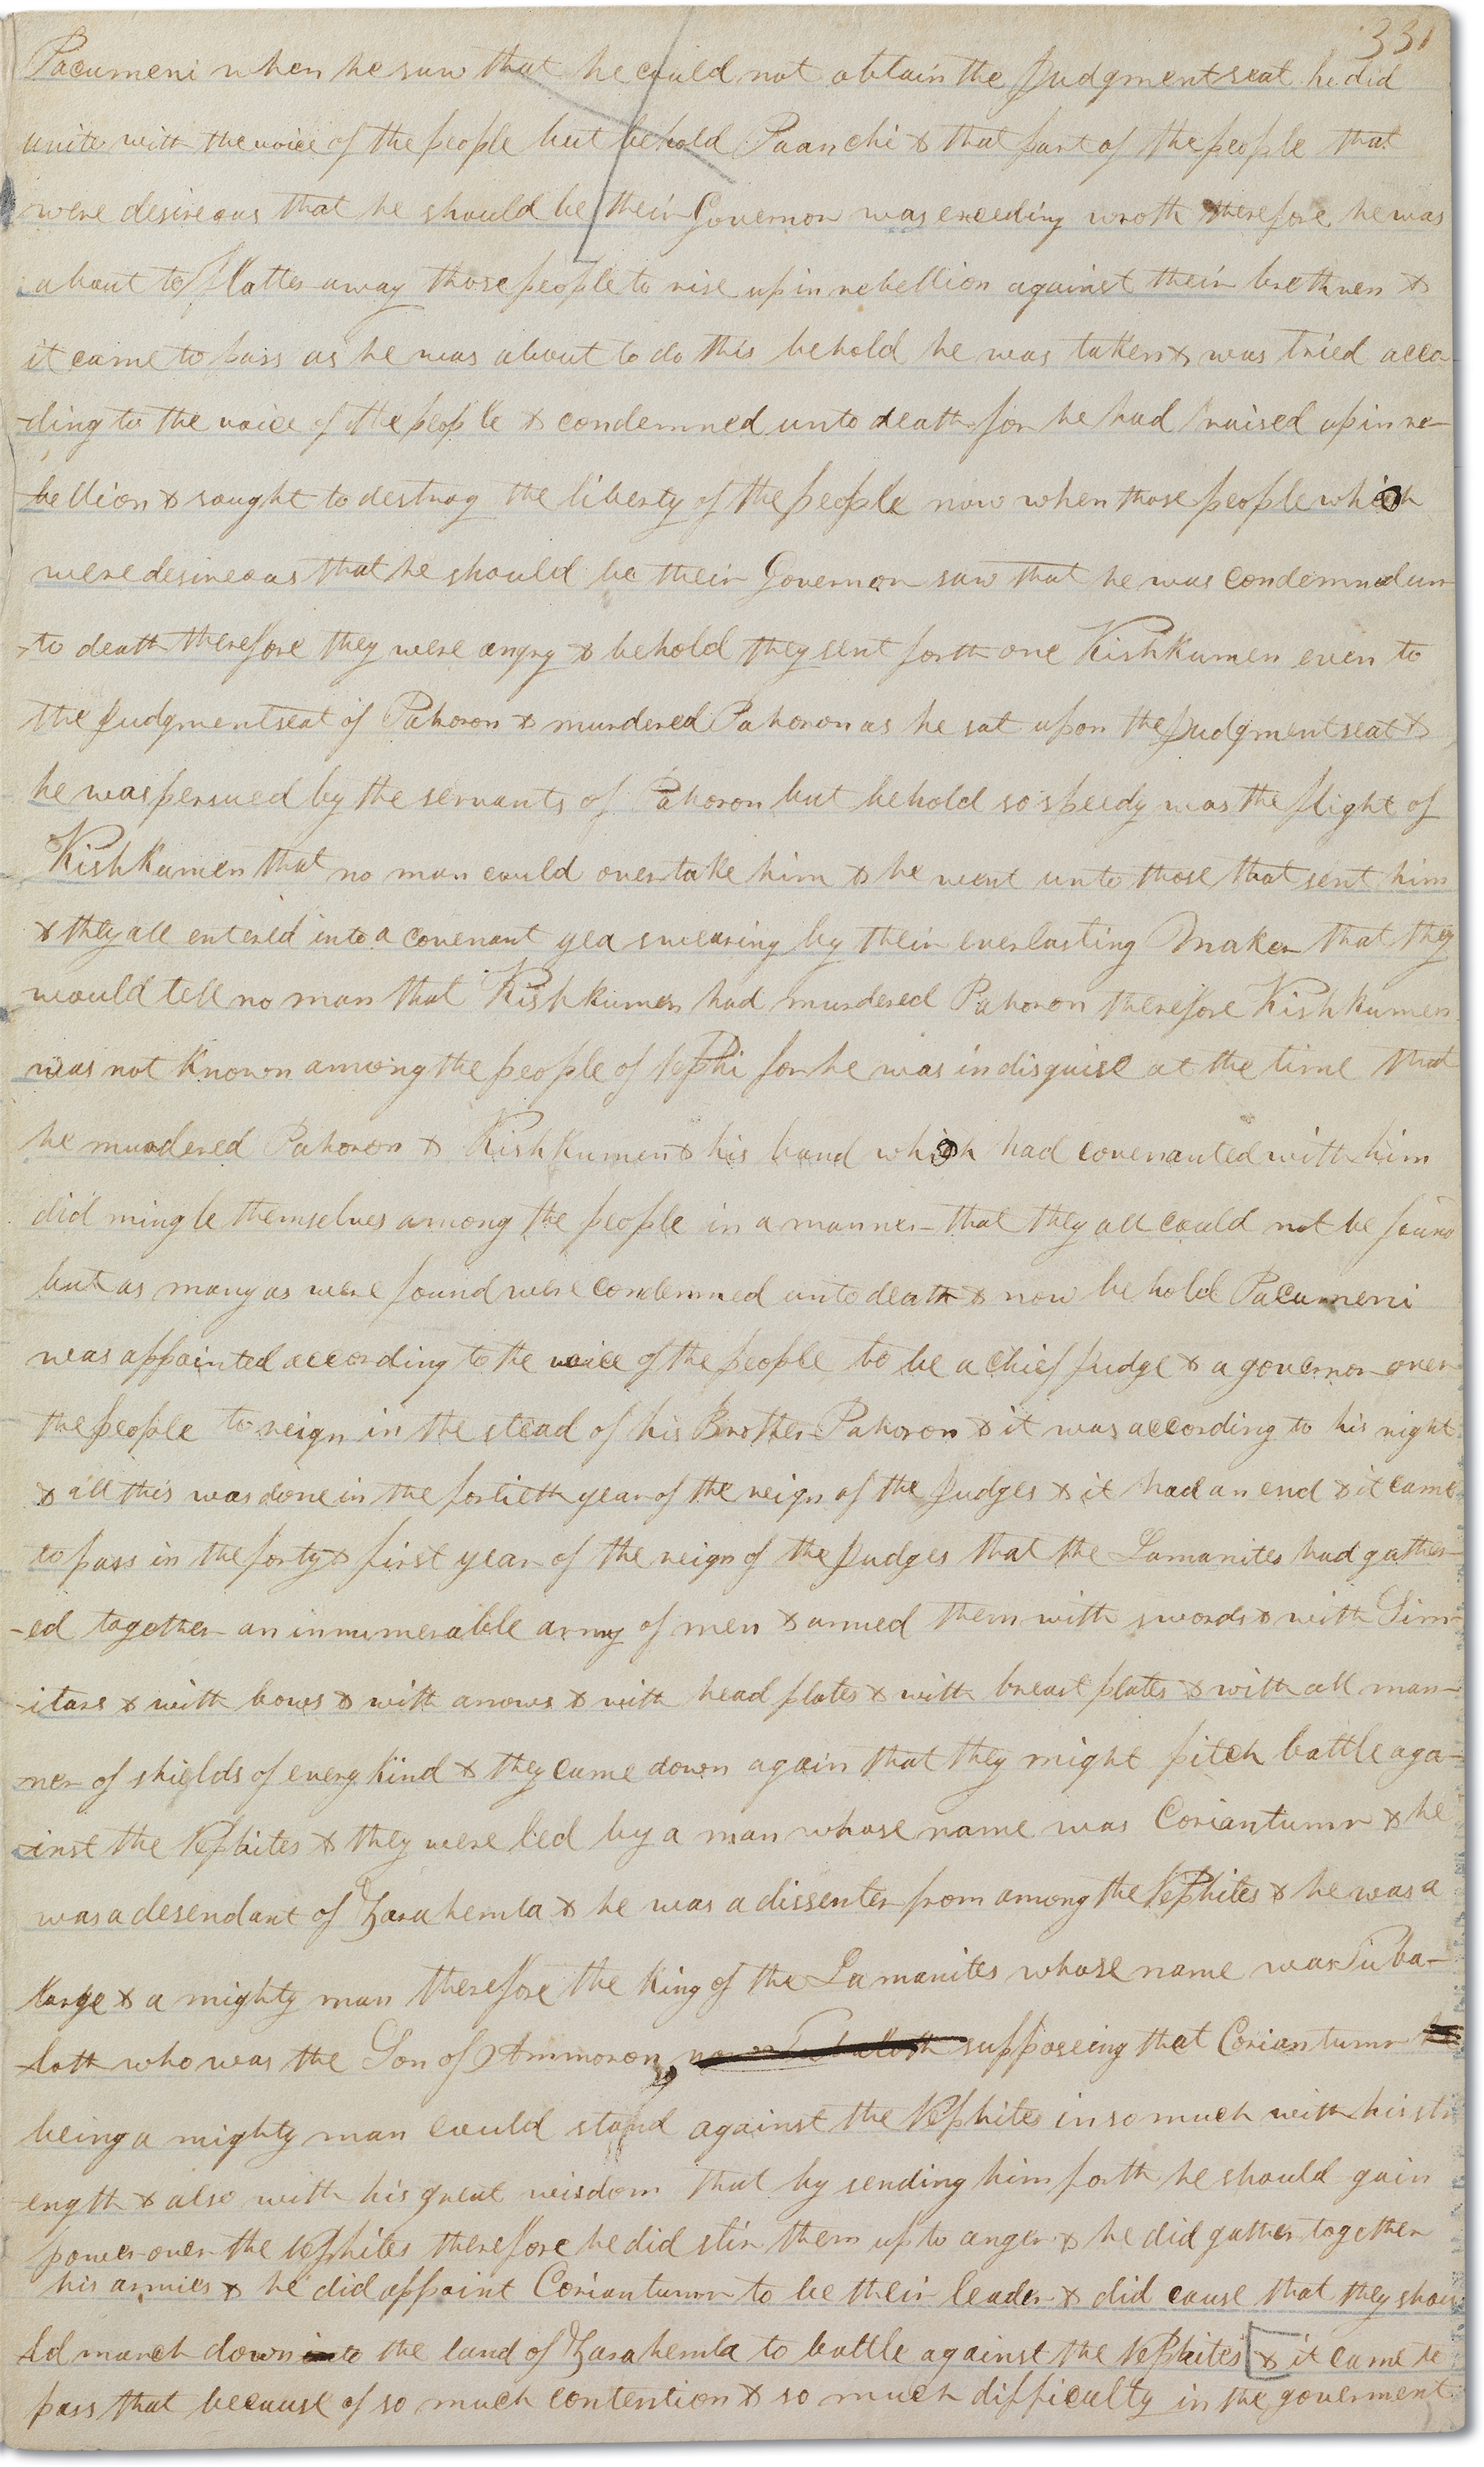 331
Pacumeni when he saw that he could not obtain the Judgment seat he did
unite with the voice of the people but behold Paanchi & that part of the people that
were desireous that he should be their Governor was exceeding wroth therefore he was
about to flatter away those people to rise up in rebellion against their brethren &
it came to pass as he was about to do this behold he was taken & was tried acco-
-ding to the voice of the people & condemned unto death for he had raised up in re-
bellion & sought to destroy the liberty of the people now when those people which
were desireous that he should be their Governor saw that he was condemned un-
-to death therefore they were angry & behold they sent forth one Kishkumen even to
the Judgment seat of Pahoron & murdered Pahoron as he sat upon the Judgment seat &
he was persued by the servants of Pahoron but behold so speedy was the flight of
Kishkumen that no man could overtake him & he went unto those that sent him
& they all entered into a covenant yea swearing by their everlasting Maker that they
would tell no man that Kishkumen had murdered Pahoron therefore Kishkumen
was not known among the people of Nephi for he was in disguise at the time that
he murdered Pahoron & Kishkumen & his band which had covenanted with him
did mingle themselves among the people in a manner that they all could not be found
but as many as were found were condemned unto death & now behold Pacumeni
was appointed according to the voice of the people to be a chief Judge & a governor over
the people to reign in the stead of his Brother Pahoron & it was according to his right
& all this was done in the fortieth year of the reign of the Judges & it had an end & it came
to pass in the forty & first year of the reign of the Judges that the Lamanites had gather-
-ed together an innumerable army of men & armed them with swords & with Sim-
-itars & with bows & with arrows & with head plates & with breast plates & with all man-
ner of shields of every kind & they came down again that they might pitch battle aga-
inst the Nephites & they were led by a man whose name was Coriantumr & he
was a desendant of Zarahemla & he was a dissenter from among the Nephites & he was a
large & a mighty man therefore the King of the Lamanites whose name was Tuba-
loth who was the Son of Ammoron, now Tubaloth supposeing that Coriantumr
being a mighty man could stand against the Nephites insomuch with his str
ength & also with his great wisdom that by sending him forth he should gain
power over the Nephites therefore he did stir them up to anger & he did gather together
his armies & he did appoint Coriantumr to be their leader & did cause that they shou
ld march down into the land of Zarahemla to battle against the Nephites [& it came to
pass that because of so much contention & so much difficulty in the goverment